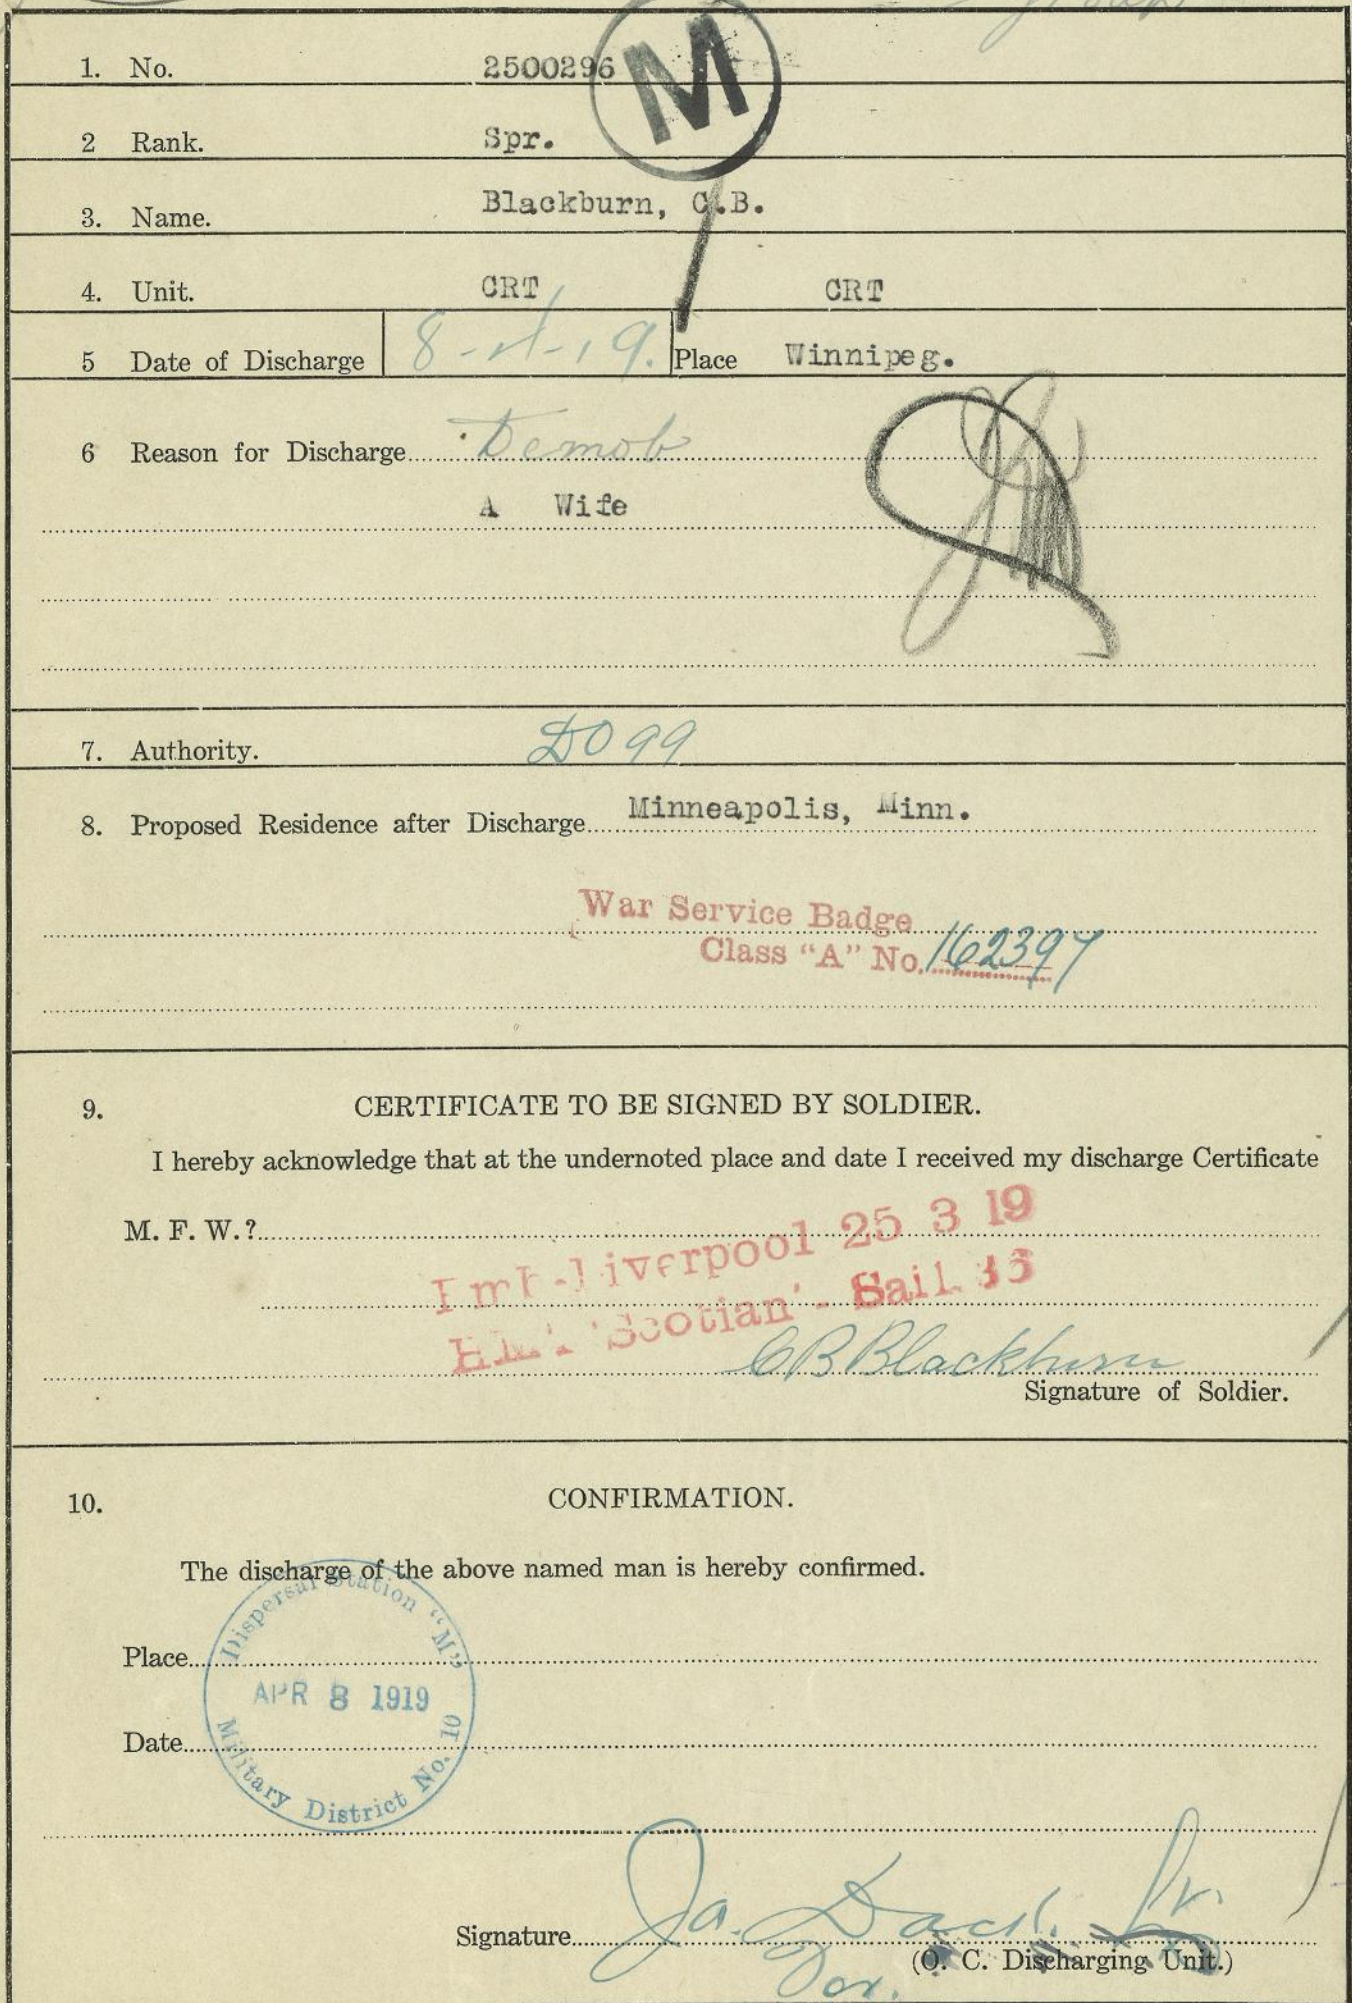 M
1. No. 2500296
2 Rank. Spr.
3. Name. Blackburn, C.B.
4. Unit. CRT CRT
5 Date of Discharge 8-4-19. Place Winnipeg.
6 Reason for Discharge Demob
A Wife
7. Authority. DO 99
8. Proposed Residence after Discharge Minneapolis, Minn.
War Service Badge
Class "A" No. 162397
9. CERTIFICATE TO BE SIGNED BY SOLDIER.
I hereby acknowledge that at the undernoted place and date I received my discharge Certificate
M. F. W.?
Liverpool 25 3 19
'Scotian' - Sail.
CB Blackburn
Signature of Soldier.
10. CONFIRMATION.
The discharge of the above named man is hereby confirmed.
Dispersal Station "M"
Place
APR 8 1919
Date
Military District No. 10
Signature
(O. C. Discharging Unit.)